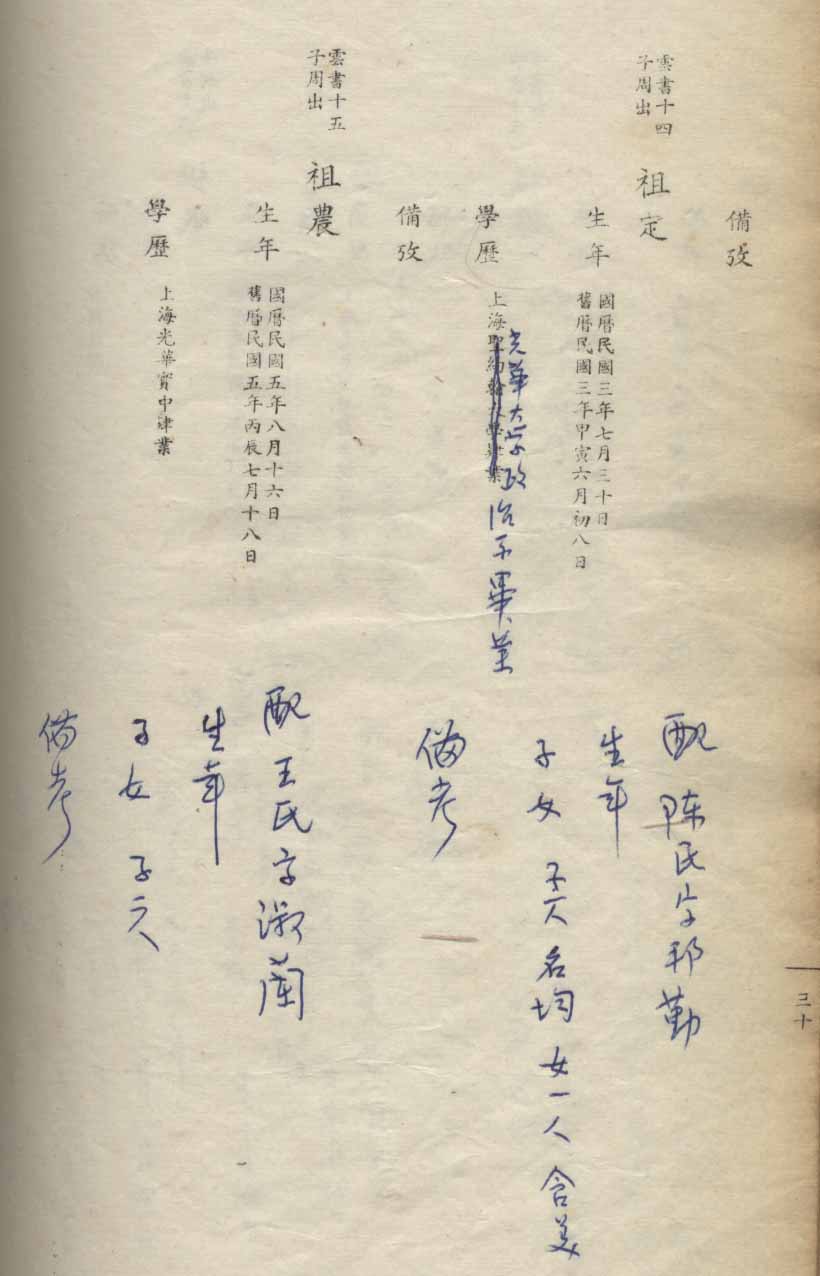 備攷
雲書十四
子周出
祖定
生年
國曆民國三年七月三十日
舊曆民國三年甲寅六月初八日
學歷
上海聖約翰大學肄業
光華大学政治系畢业
備攷
雲書十五
子周出
祖農
生年
國曆民國五年八月十六日
舊曆民國五年丙辰七月十八日
學歷
上海光華實中肄業
配 陈氏字邦勤
生年
子女 子一人名均 女一人 含美
備考
配 王氏字淑蘭
生年
子女 子二人
備考
三十